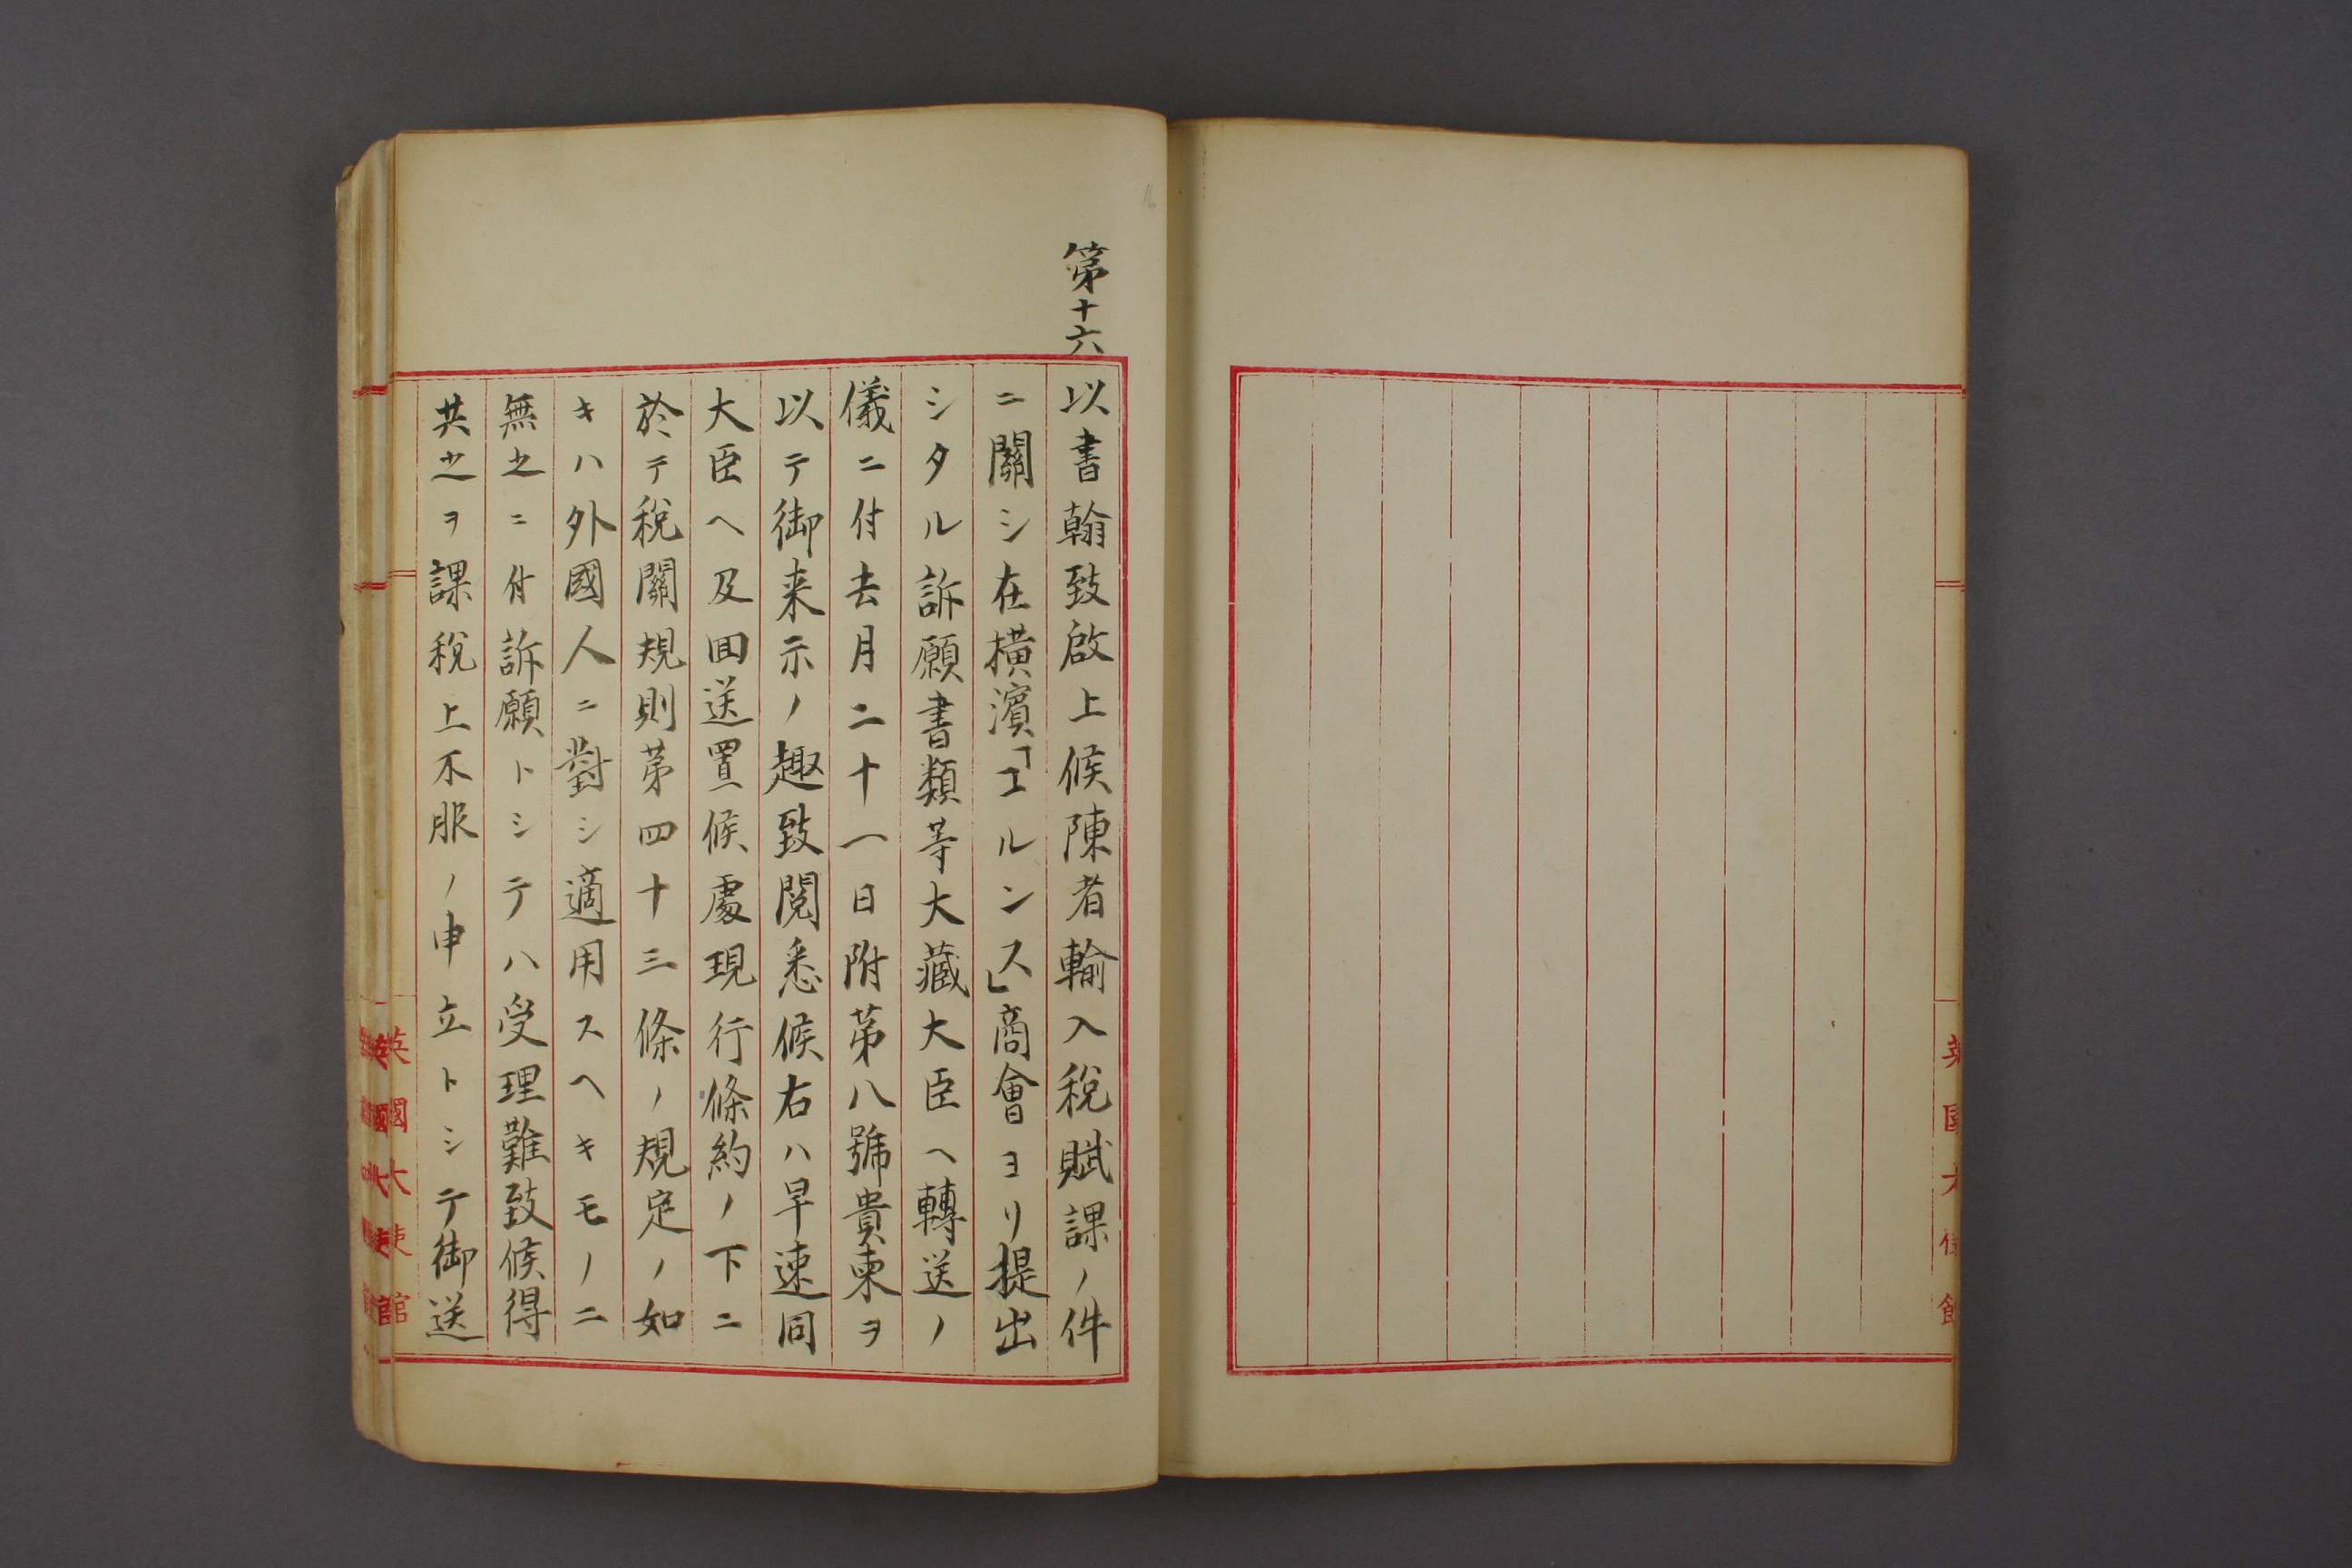 英國大使館
第十六
以書翰致啟上候陳者輸入税賦課ノ件
ニ關シ在橫濱「エルンス」商會ヨリ提出
シタル訴願書類等大藏大臣ヘ轉送ノ
儀ニ付去月二十一日附苐八號貴柬ヲ
以テ御来示ノ趣致閲悉候右ハ早速同
大臣ヘ及回送置候處現行條約ノ下ニ
於テ税關規則苐四十三條ノ規定ノ如
キハ外國人ニ對シ適用スヘキモノニ
無之ニ付訴願トシテハ受理難致候得
共之ヲ課税上不服ノ申立トシテ御送
英國大使館